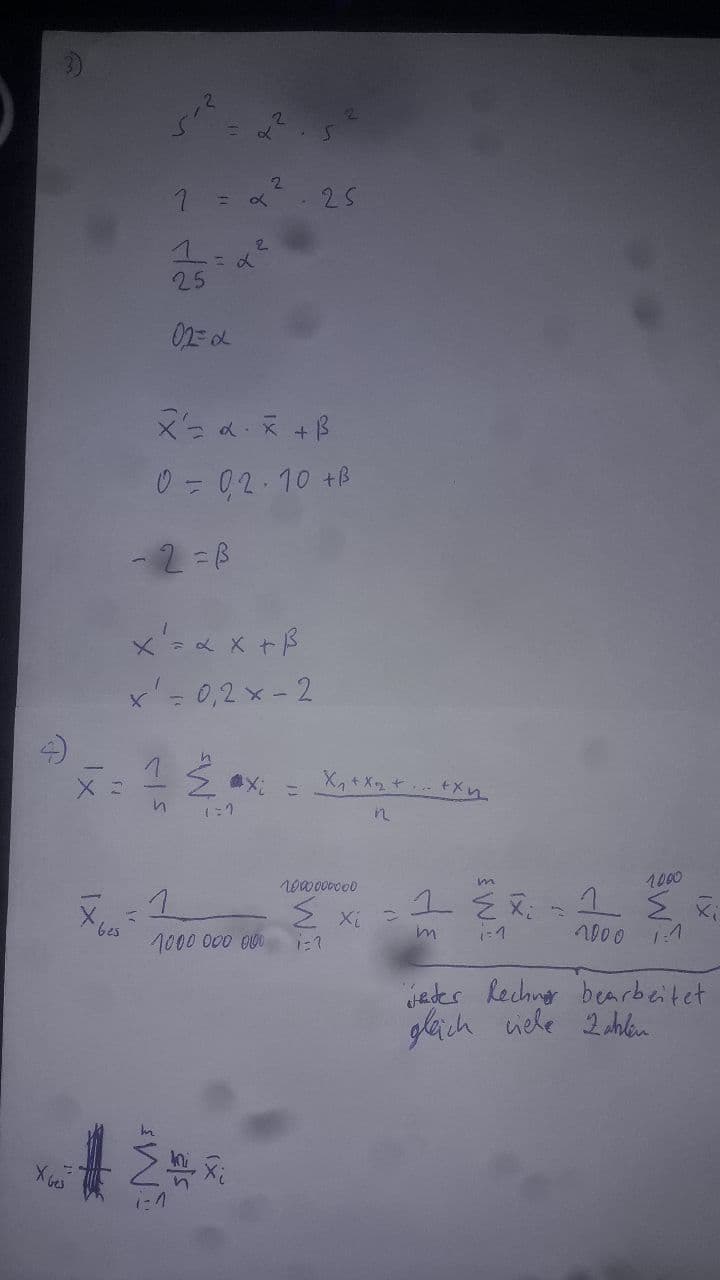 3)
s'² = α² · s²
1 = α² · 25
1/25 = α²
0,2 = α
x̄' = α · x̄ + β
0 = 0,2 · 10 + β
- 2 = β
x' = α x + β
x' = 0,2 x - 2
4)
x̄ = 1/n Σ_{i=1}^{n} x_i = (x_1 + x_2 + ... + x_n)/n
x̄_ges = 1/1000 000 000 Σ_{i=1}^{1000000000} x_i = 1/m Σ_{i=1}^{m} x̄_i = 1/1000 Σ_{i=1}^{1000} x̄_i
jeder Rechner bearbeitet
gleich viele Zahlen
x_ges = Σ_{i=1}^{m} n_i/n x̄_i